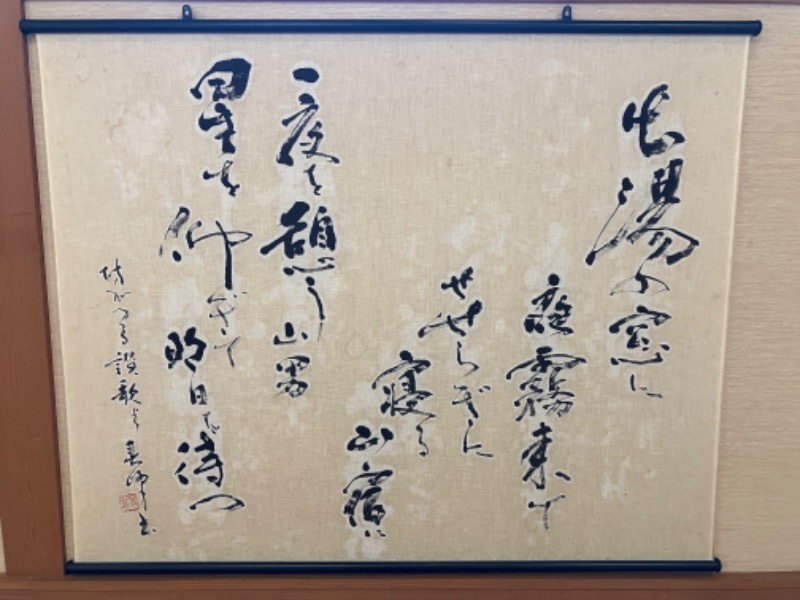 出湯の窓に
夜霧来て
せせらぎに
寝る山宿に
一夜を憩う山男
星を仰ぎて明日を待つ
坊がつる讃歌より